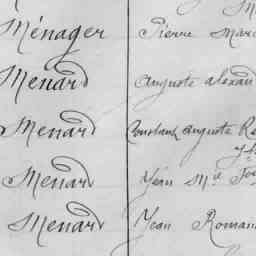 Ménager Pierre Mari
Menard auguste alexan
Menard Constant auguste Re
Menard Jean M.e
Menard Jean Roman